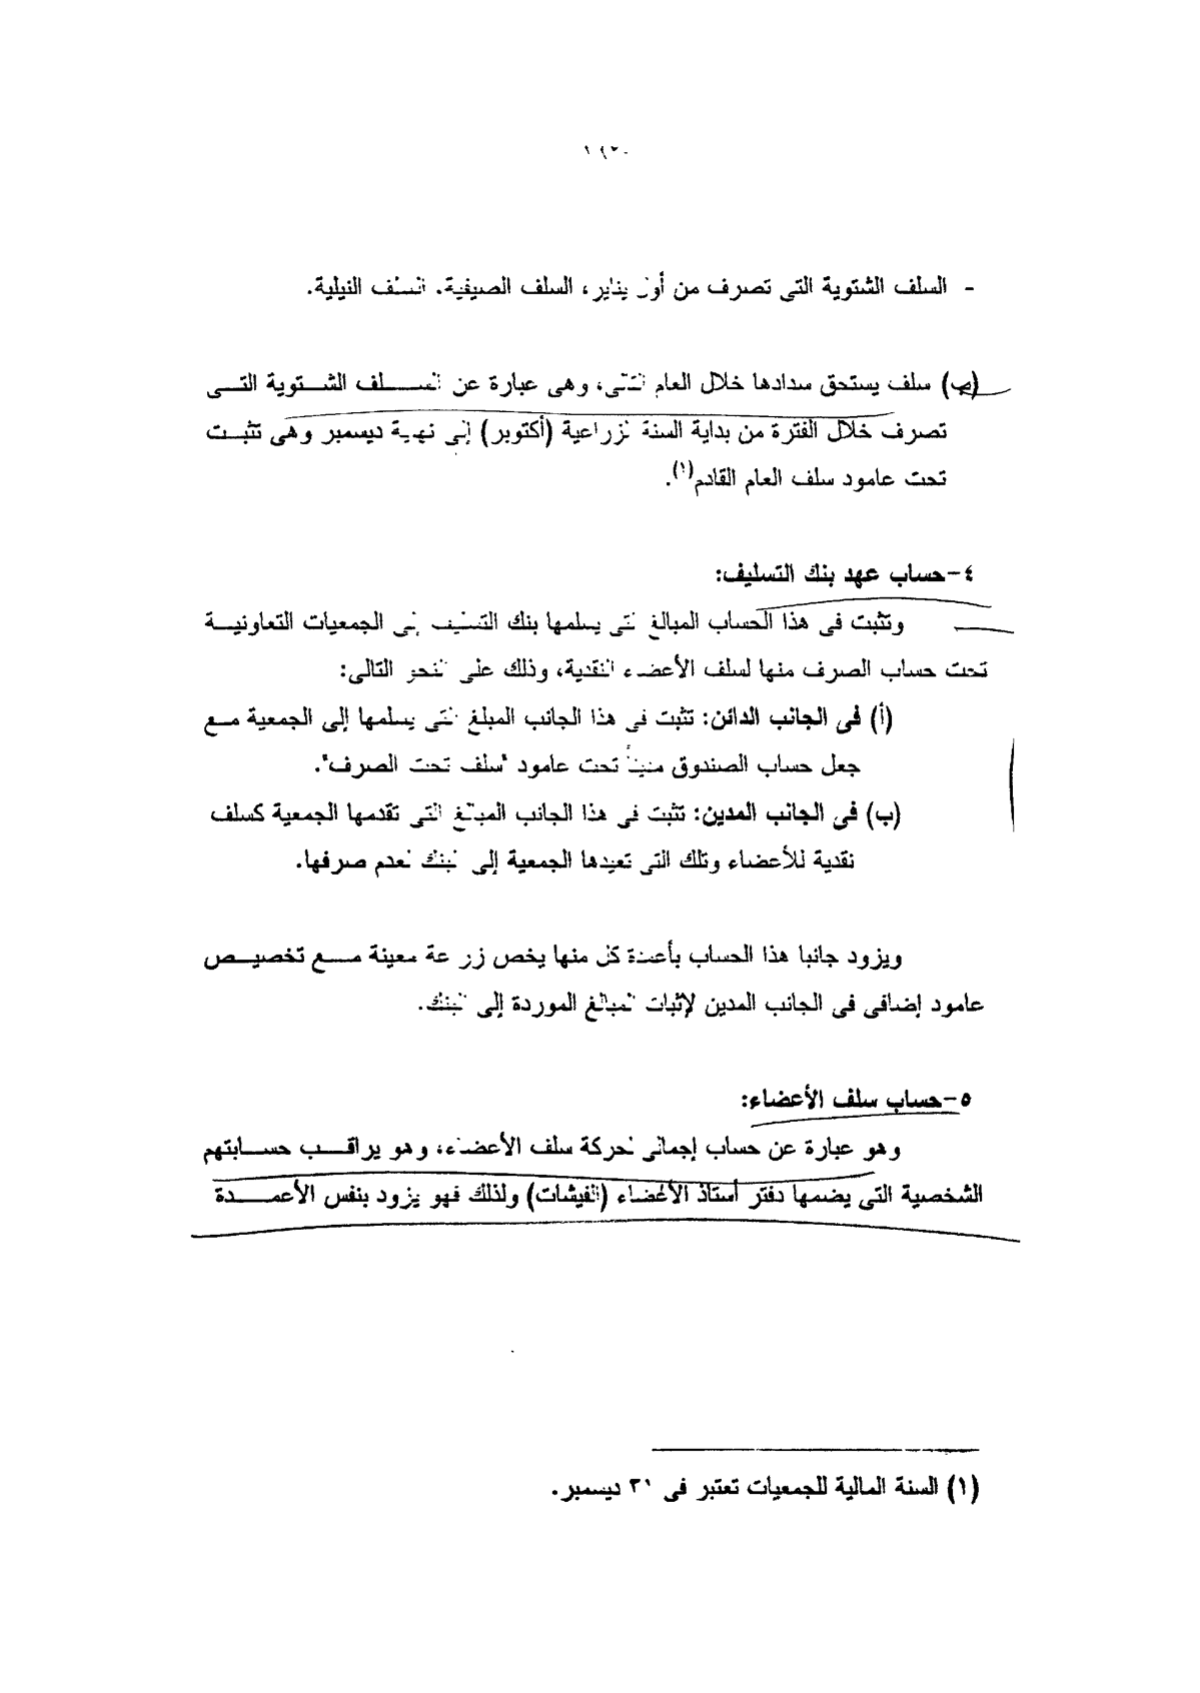 - السلف الشتوية التى تصرف من أول يناير، السلف الصيفية، السلف النيلية.
(ب) سلف يستحق سدادها خلال العام التالى، وهى عبارة عن السلف الشتوية التى
تصرف خلال الفترة من بداية السنة الزراعية (أكتوبر) إلى نهاية ديسمبر وهى تثبت
تحت عامود سلف العام القادم(١).
٤-حساب عهد بنك التسليف:
وتثبت فى هذا الحساب المبالغ التى يسلمها بنك التسليف إلى الجمعيات التعاونية
تحت حساب الصرف منها لسلف الأعضاء النقدية، وذلك على النحو التالى:
(أ) فى الجانب الدائن: تثبت فى هذا الجانب المبلغ التى يسلمها إلى الجمعية مع
جعل حساب الصندوق مديناً تحت عامود "سلف تحت الصرف".
(ب) فى الجانب المدين: تثبت فى هذا الجانب المبالغ التى تقدمها الجمعية كسلف
نقدية للأعضاء وتلك التى تعيدها الجمعية إلى البنك لعدم صرفها.
ويزود جانبا هذا الحساب بأعمدة كل منها يخص زراعة معينة مع تخصيص
عامود إضافى فى الجانب المدين لإثبات المبالغ الموردة إلى البنك.
٥-حساب سلف الأعضاء:
وهو عبارة عن حساب إجمالى لحركة سلف الأعضاء، وهو يراقب حسابتهم
الشخصية التى يضمها دفتر أستاذ الأعضاء (الفيشات) ولذلك فهو يزود بنفس الأعمدة
(١) السنة المالية للجمعيات تعتبر فى ٣١ ديسمبر.